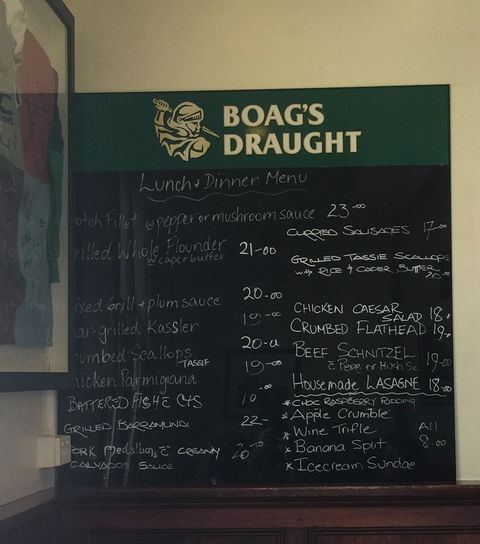 BOAG'S
DRAUGHT
Lunch + Dinner Menu
otch Fillet w pepper or mushroom sauce 23-00
rilled Whole Flounder 21-00
w caper butter
20-00
ixed Grill + plum sauce
ar-grilled Kassler 19-00
rumbed Scallops 20-00
TASSIE 19-00
hicken Parmigiana
BATTERED FISH C CYS
GRILLED BARRAMUNDI 22-
PORK Medallions C CREAMY
CALVADOS SAUCE
CURRIED SAUSAGES 17-00
GRILLED TASSIE SCALLOPS
with RICE & CAPER BUTTER
20-00
CHICKEN CAESAR
SALAD 18
CRUMBED FLATHEAD 19
BEEF SCHNITZEL 19-00
HOUSEMADE LASAGNE 18-00
* CHOC RASPBERRY PUDDING
* Apple Crumble
* Wine Trifle All
* Banana Split 8.00
* Icecream Sundae